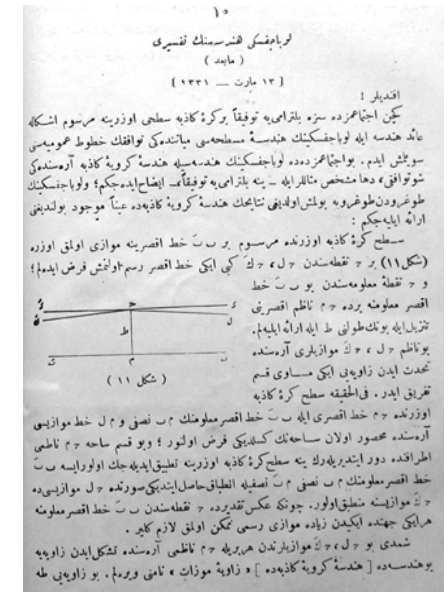 ١٥
لوباچفسكی هندسه‌سنك تفسیری
( مابعد )
[ ١٣ مارت — ١٣٣١ ]
افندیلر !
كچن اجتماعمزده سزه بلترامی‌یه توفیقاً بر كرۀ كاذبه سطحی اوزرینه مرسوم اشكاله
عائد هندسه ایله لوباچفسكینك هندسۀ مسطحه‌سی میاننده‌كی توافقك خطوط عمومیه‌سنی
سویلمش ایدم . بو اجتماعمزده‌ده لوباچفسكینك هندسه‌سیله هندسۀ كرویۀ كاذبه آره‌سنده‌كی
شو توافقی ، دها مشخص مثاللر ایله — ینه بلترامی‌یه توفیقاً — ایضاح ایده‌جكم ؛ ولوباچفسكینك
طوغرودن طوغرویه بولمش اولدیغی نتایجك هندسۀ كرویۀ كاذبه‌ده عیناً موجود بولندیغنی
ارائه ایلیه‌جكم :
سطح كرۀ كاذبه اوزرنده مرسوم بر خط اقصرینه موازی اولمق اوزره
(شكل ١١) بر ح نقطه‌سندن كبی ایكی خط اقصر رسم اولنمش فرض ایده‌لم ؛
و ح نقطۀ معلومه‌سندن بو خط
اقصر معلومنه برده ح م ناظم اقصرینی
تنزیل ایله بونك طولنی ط ایله ارائه ایلیه‌لم .
بو ناظم موازیلری آره‌سنده
تحدث ایدن زاویه‌یی ایكی مساوی قسمه
تفریق ایدر . فی‌الحقیقه سطح كرۀ كاذبه
ط
م
( شكل ١١ )
اوزرنده ح م خط اقصری ایله خط اقصر معلومنك نصفی و خط موازیسی
آره‌سنده محصور اولان ساحه‌نك كسلدیكی فرض اولنور ؛ و بو قسم ساحه ح م ناظمی
اطرافنده دور ایتدیریله‌رك ینه سطح كرۀ كاذبه اوزرینه تطبیق ایدیله‌جك اولورایسه
خط اقصر معلومنك نصفی نصفیله انطباق حاصل ایتدیكی صورتده موازیسی‌ده
موازیسنه منطبق اولور . چونكه عكس تقدیرده ح نقطه‌سندن خط اقصر معلومنه
هر ایكی جهتده ایكیدن زیاده موازی رسمی ممكن اولمق لازم كلیر .
شمدی بو موازیلرندن هربریله ح م ناظمی آره‌سنده تشكل ایدن زاویه‌یه
بو هندسه‌ده [ هندسۀ كرویۀ كاذبه‌ده ] « زاویۀ موزات » نامنی ویره‌لم . بو زاویه‌یی طه